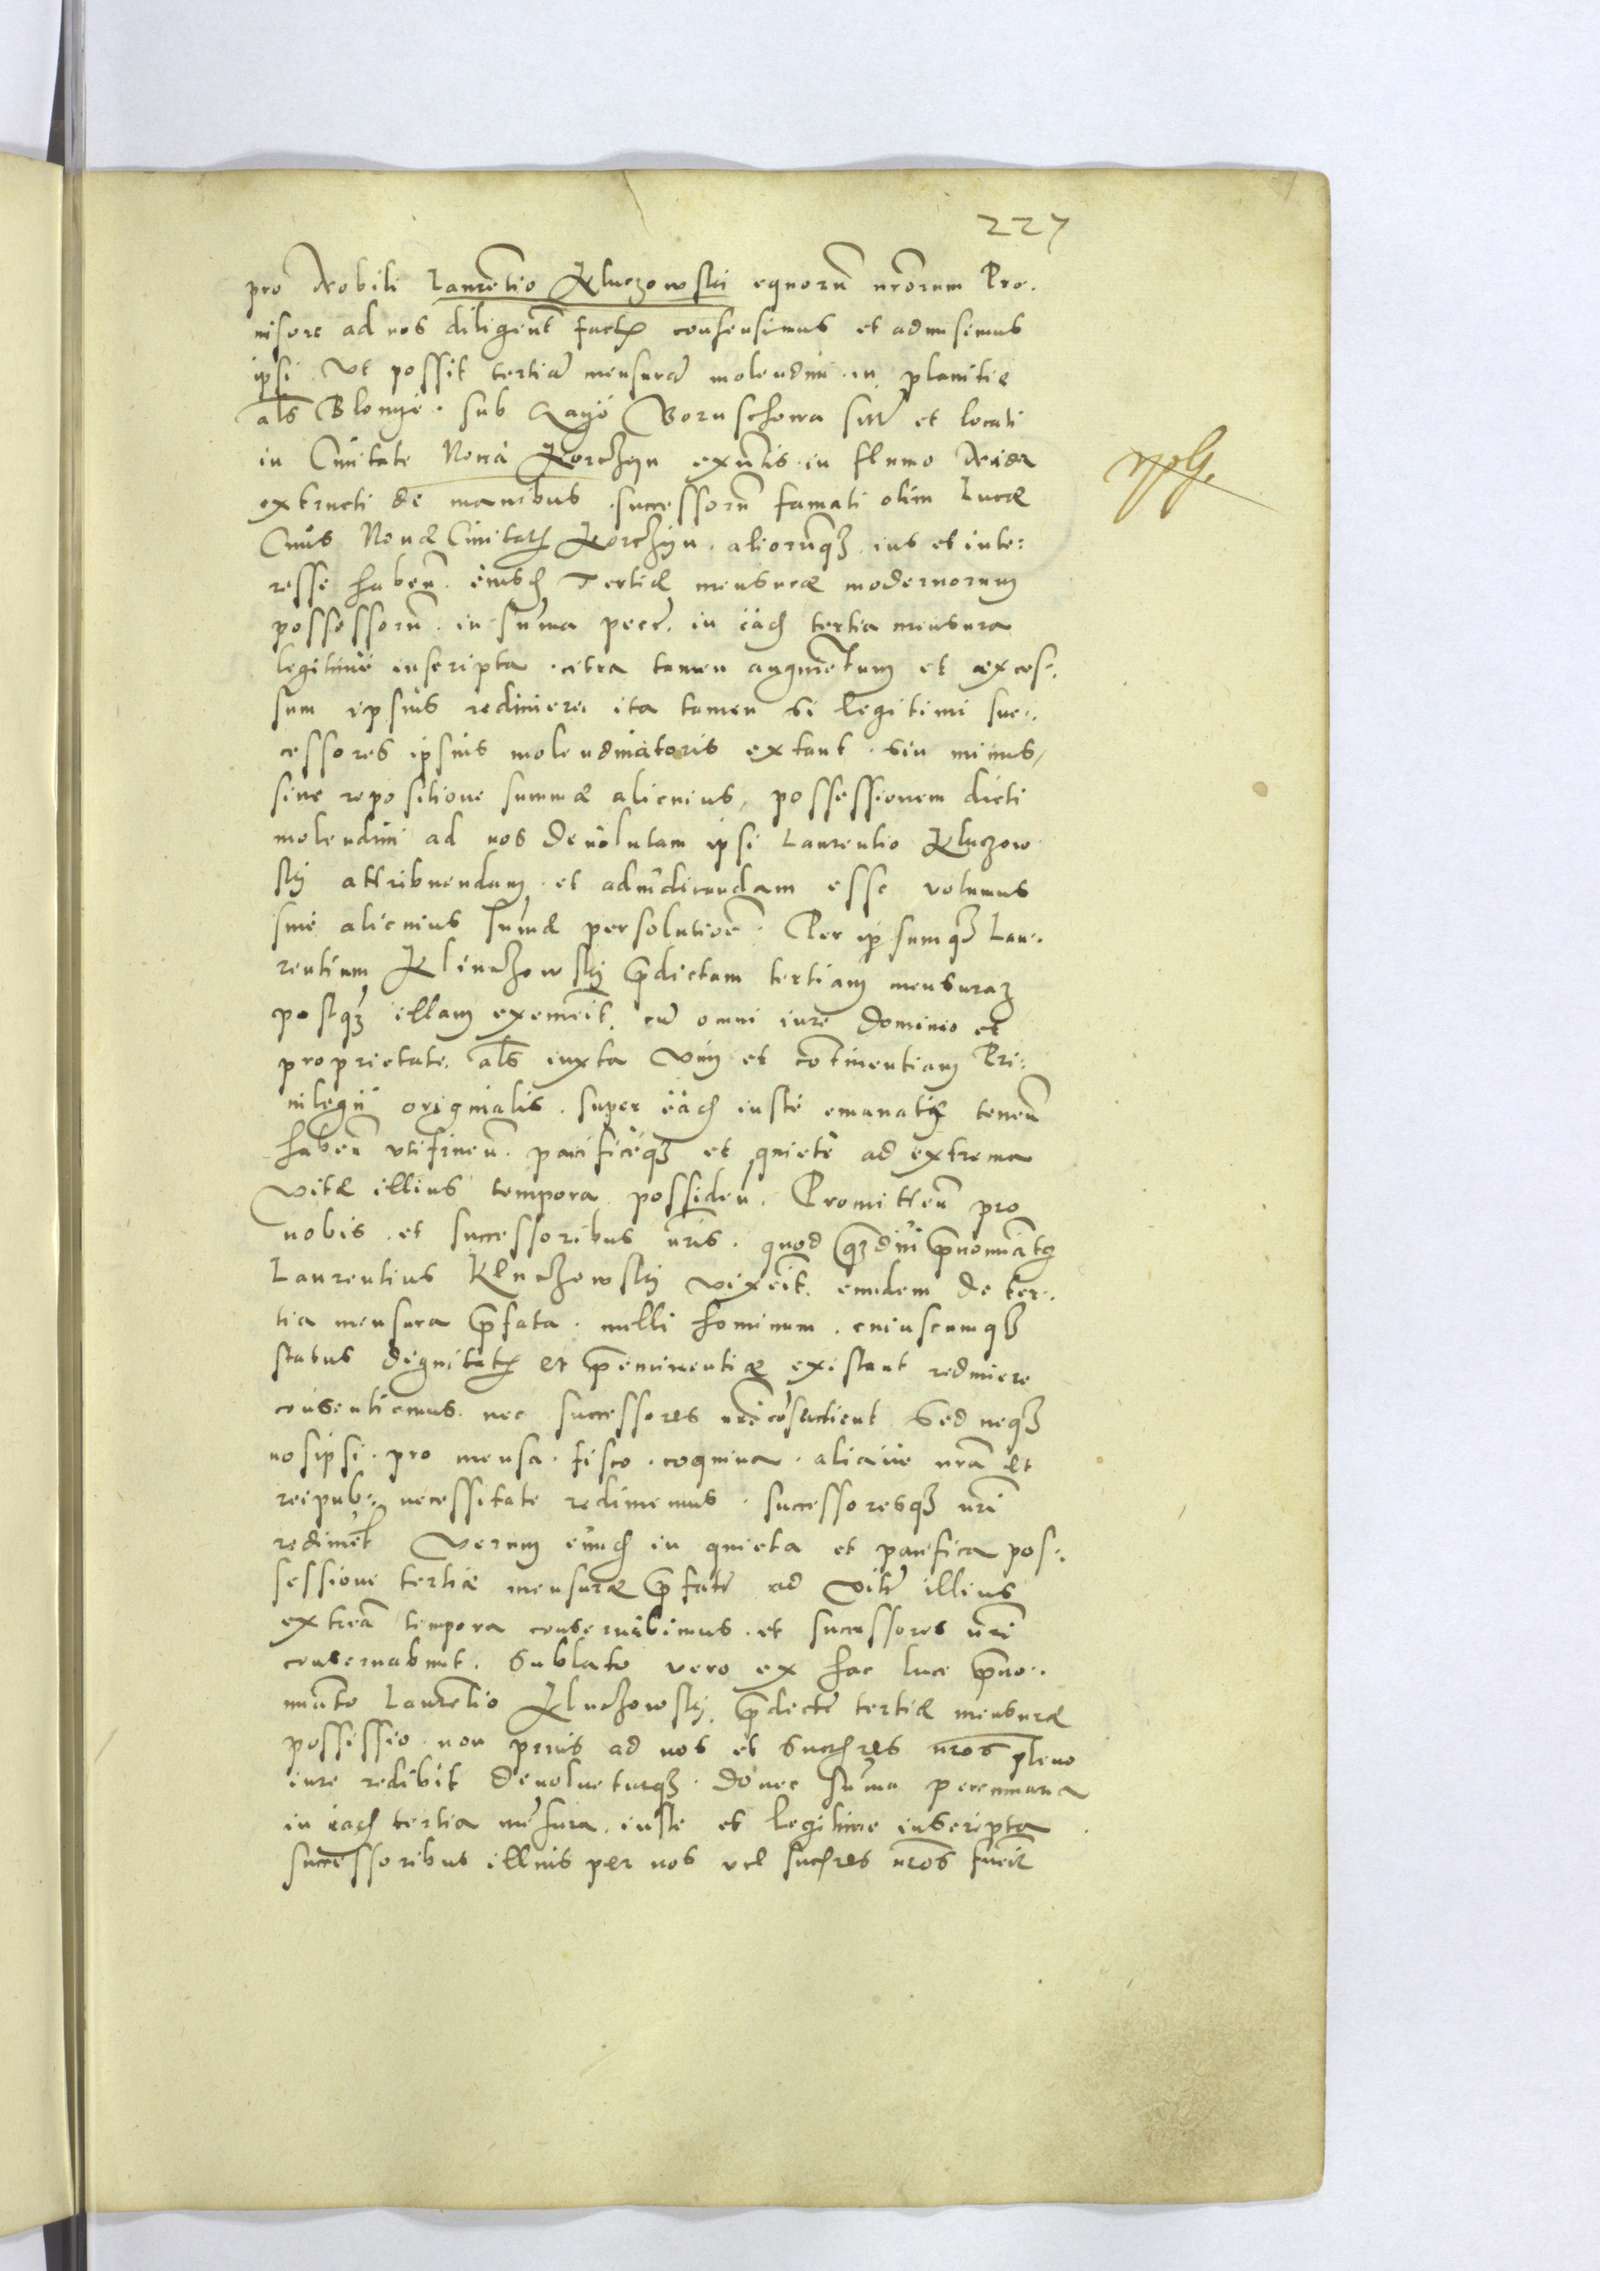 227
pro Nobili Laurẽtio Kluczowski equorũ nr̃orum Pro-
uisore ad nos diligent̃ fact; consensimus et admisimus
ipsi Vt possit tertiã mensurã molendini in planitie
al̃s Blonyé sub Boruschowa sitĩ et locati
in Ciuitate Noua Korczyn exñtis in flumo Nida
extructi de manibus successorũ famati olim Lucæ
Ciuis Nouæ Ciuitat; Korczyn aliorumq; ius et inte-
resse habeñ eiusd Tertiæ mensuræ modernorum
possessorũ in sum̃a pecẽ in eãd tertia mensura
legitimè inscripta citra tamen augmẽtum et exces-
sum ipsius redimere ita tamen si legitimi suc-
cessores ipsius molendinatoris extant sin minus,
sine repositione summæ alicuius, possessionem dicti
molendini ad nos deuolutam ipsi Laurentio Kluczow
skj attribuendam et adiudicandam esse volumus
sine alicuius sum̃æ persolutioẽ Per ipsumq; Lau-
rentium Kluczowskj p̃dictam tertiam mensuraz
postq; illam exemerit, cũ omni iure dominio et
proprietate al̃s iuxta vim et continentiam Pri-
uilegii originalis super eãd iuste emanati teneñ
habeñ vtifrueñ pacificeq; et quietè ad extrema
vitæ illius tempora possideñ. Promitteñ pro
nobis et successoribus nr̃is quod q;diu p̃nominãtg
Laurentius Kluczowskj vixerit eundem de ter-
tia mensura p̃fata nulli hominum cuiuscumq;
status dignitat; et p̃eminentiæ existant redimere
consentiemus nec successores nr̃i cõsentient Sed neq;
nosipsi pro mensa fisco coquina aliaùe nrã et
reipub: necessitate redimemus successoresq; nr̃i
redimẽt Verum eũd in quieta et pacifica pos-
sessione tertiæ mensuræ p̃fatẽ ad vitẽ illius
extreã tempora conseruabimus et successores nr̃i
conseruabunt. Sublato vero ex hac luce p̃no-
minãto Laurẽtio Kluczowskj p̃dictẽ tertiæ mensuræ
possessio non prius ad nos et succ̃res nr̃os pleno
iure redibit deuolueturq; donec sum̃a pecuniaria
in eãd tertia mẽsura iuste et legitime inscripta
successoribus illius per nos vel succ̃res nr̃os fuerit